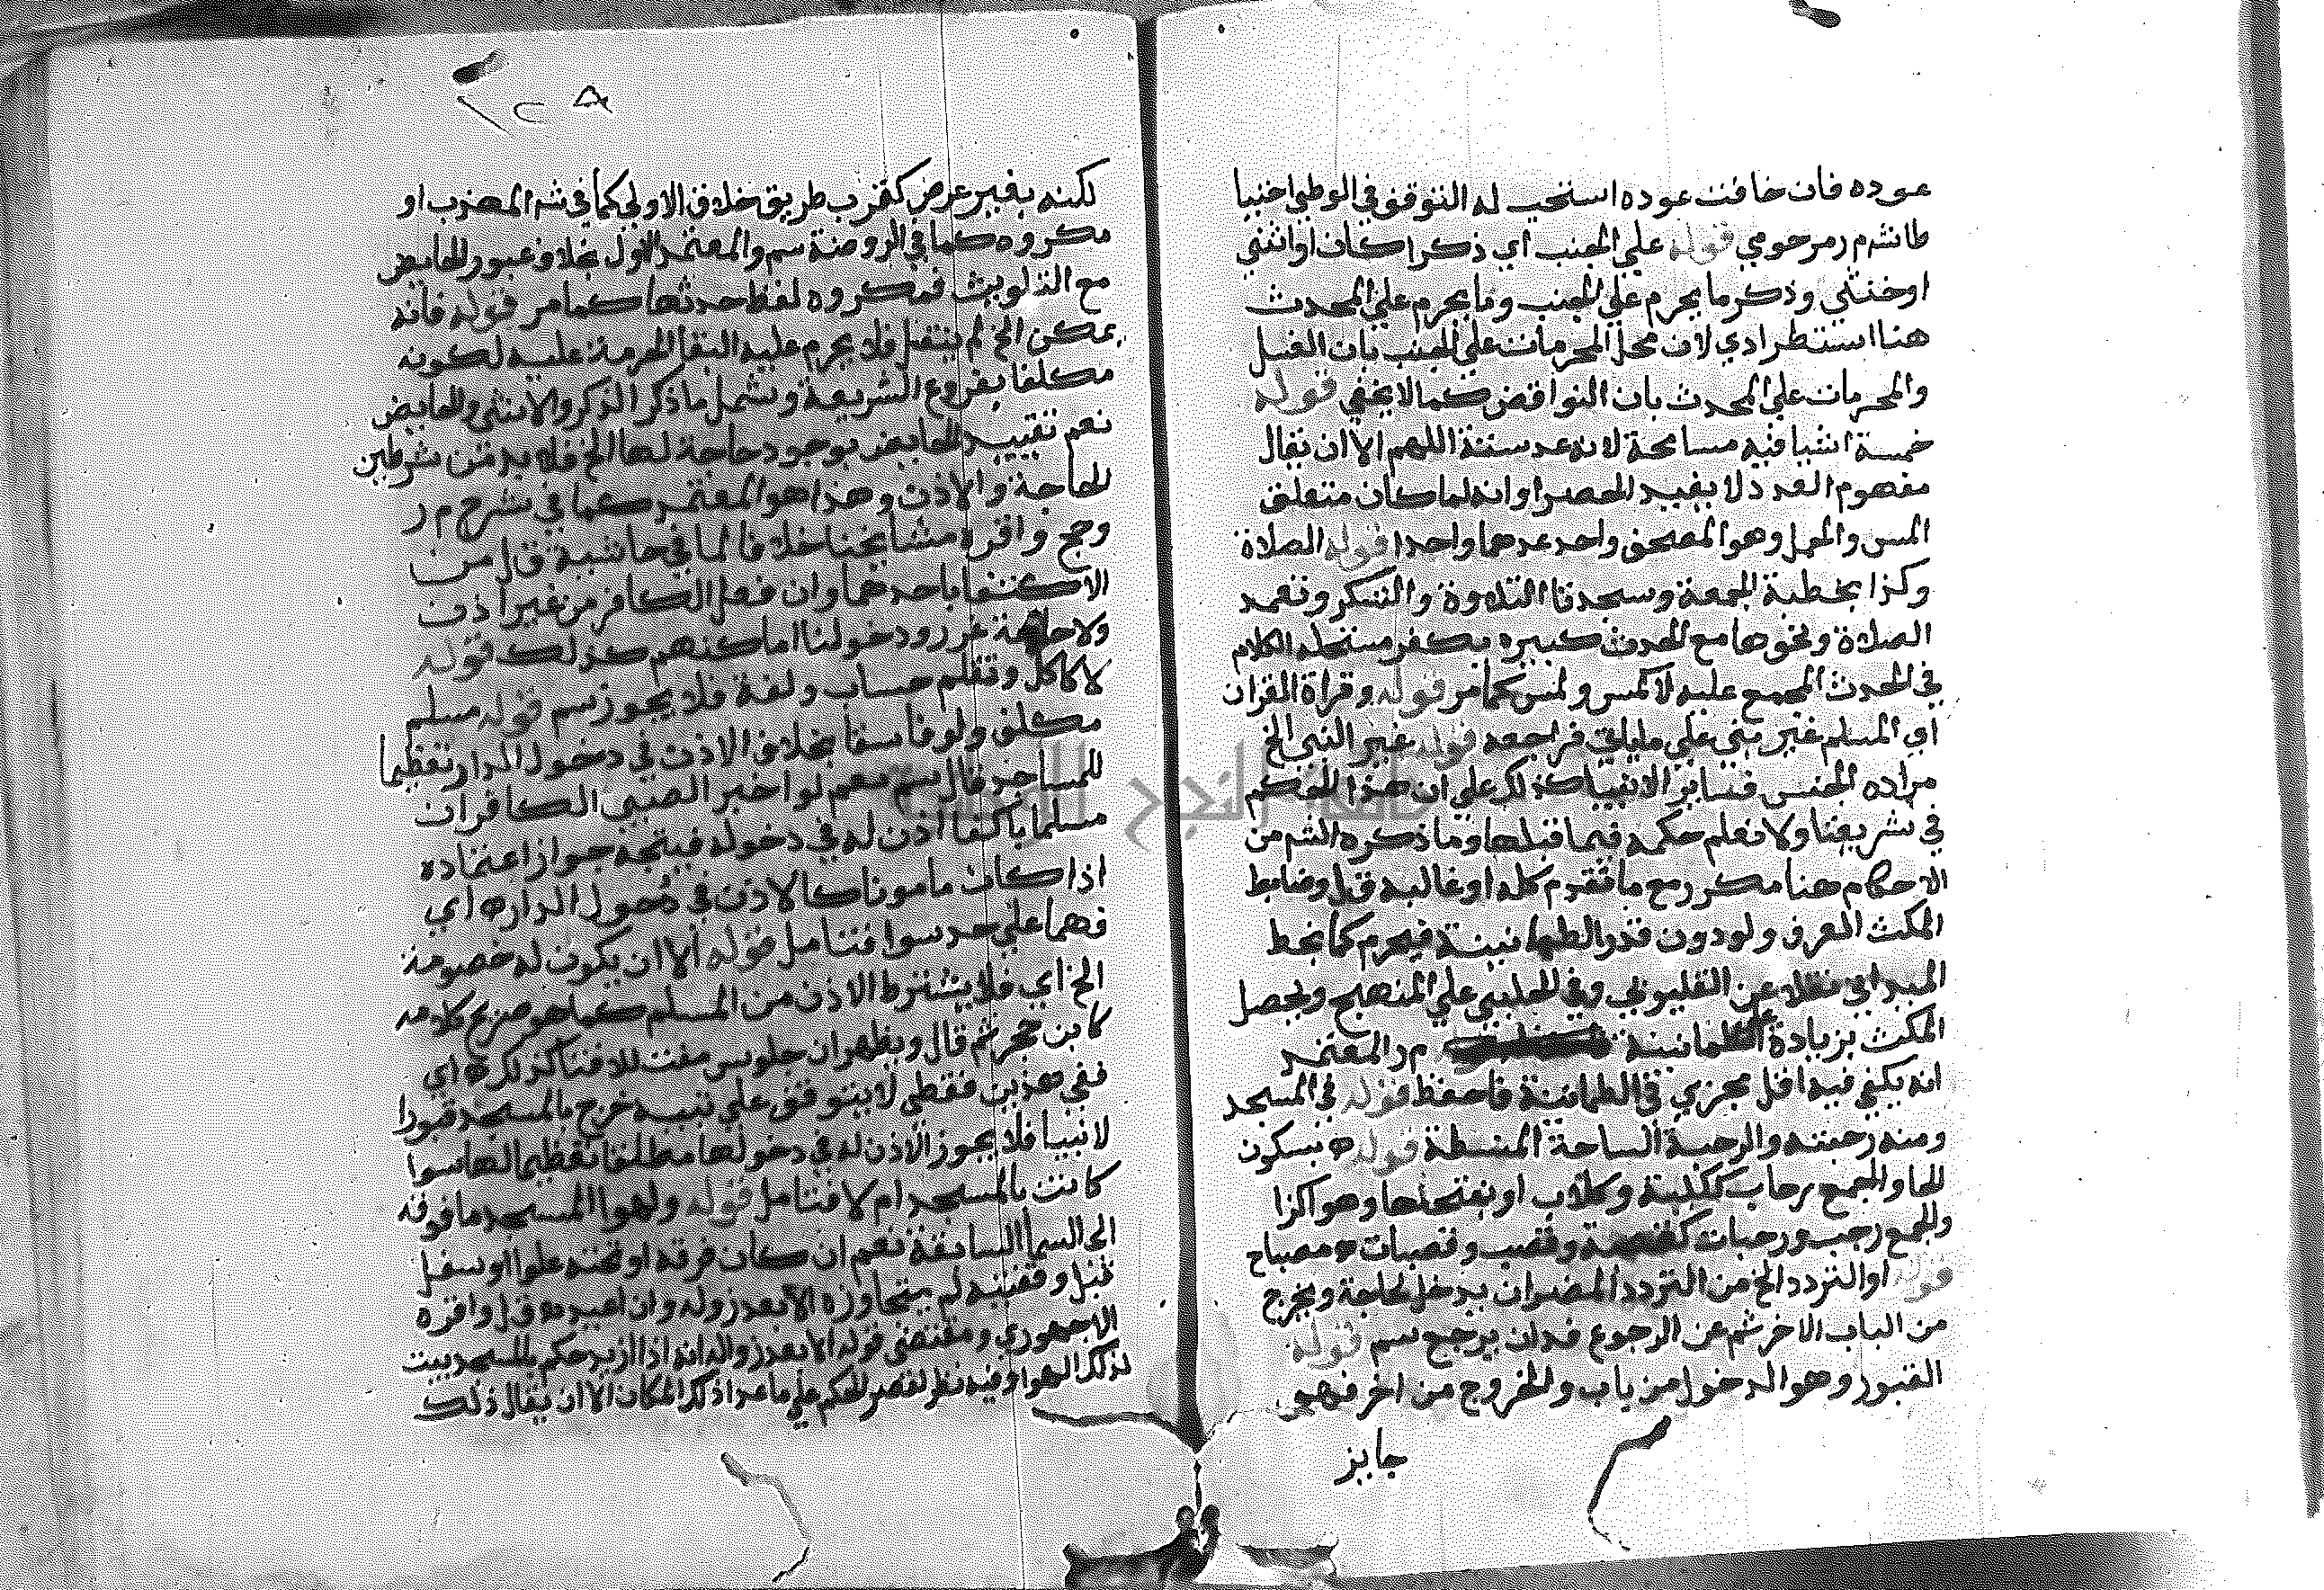 عوده فان خافت عوده استحب له التوقف في الوطي احتيا
طا شرم ر مرحومي قوله على الجنب اي ذكرا كان او انثى
او خنثى وذكر ما يحرم على الجنب وما يحرم على المحدث
هنا استطرادي لان محل المحرمات على الجنب باب الغسل
والمحرمات على المحدث باب النواقض كما لا يخفى قوله
خمسة اشيا فيه مسامحة لانه عد ستة اللهم الا ان يقال
مفهوم العدد لا يفيد الحصر او انه لما كان متعلق
المس والحمل وهو المصحف واحد عدهما واحدا قوله الصلاة
وكذا بخطبة الجمعة وسجدتا التلاوة والشكر وتعمد
الصلاة ونحوها مع الحدث كبيرة يكفر مستحله الكلام
في الحدث المجمع عليه لا كمس ولمس كما مر قوله وقراة القران
اي المسلم غير مبني على ما ياتي فراجعه قوله غير النبي الخ
مراده الجنس فساير الانبيا كذلك على ان هذا الحكم
في شريعتنا ولا نعلم حكمه فيما قبلها وما ذكره الشم من
الاحكام هنا مكرر مع ما تقدم كله او غالبه ق ل وضابط
المكث العرفي ولو دون قدر الطمانينة فيحرم كما بخط
الميداني نقلا عن القليوبي وفي الحلبي على المنهج ويحصل
المكث بزيادة على الطمانينة م ر المعتمد
انه يكفي فيه اقل مجزي في الطمانينة فاحفظ قوله في المسجد
ومنه رحبته والرحبة الساحة المنبسطة قوله ه بسكون
الحا والجمع رحاب ككلبة وكلاب او بفتحتها وهو اكثر
والجمع رحب ورحبات كقصبة وقصب وقصبات ه مصباح
قوله او التردد الخ من التردد المضر ان يدخل لحاجة ويخرج
من الباب الاخر ثم عن الرجوع فله ان يرجع سم قوله
العبور وهو الدخول من باب والخروج من اخر فهو
جايز
١٢٨
لكنه بغير عرض كقرب طريق خلاف الاولى كما في شم المهذب او
مكروه كما في الروضة سم والمعتمد الاول بخلاف عبور الحايض
مع التلويث فمكروه لغلظ حدثها كما مر قوله فانه
يمكن الخ لم ينتقل فلا يحرم عليه البقا الحرمة عليه لكونه
مكلفا بفروع الشريعة وشمل ما ذكر الذكر والانثى والحايض
نعم تقييد الحايض بوجود حاجة لها الخ فلا بد من شرطين
الحاجة والاذن وهذا هو المعتمد كما في شرح م ر
وحج واقره مشايخنا خلافا لما في حاشية ق ل من
الاكتفا باحدهما وان فعل الكافر من غير اذن
ولا حاجة عزر ودخولنا اماكنهم كذلك قوله
لا كاكل وتعلم حساب ولغة فلا يجوز سم قوله مسلم
مكلف ولو فاسقا بخلاف الاذن في دخول الدار وتعظيما
للمساجد قال سم نعم لو اخبر الصبي الكافر ان
مسلما بالغا اذن له في دخوله فيتجه جواز اعتماده
اذا كان مامونا كالاذن في دخول الدار ه اي
فهما على حد سوا فتامل قوله الا ان يكون له خصومة
الخ اي فلا يشترط الاذن من المسلم كما هو صريح كلامه
كابن حجر ثم قال ويظهر ان جلوس مفت للافتا كذلك ه اي
ففي هذين فقط لا يتوقف على تنبيه خرج بالمسجد قبور ا
لانبيا فلا يجوز الاذن له في دخولها مطلقا تعظيما لها سوا
كانت بالمسجد ام لا فتامل قوله ولهوا المسجد ما فوقه
الى السما السابعة نعم ان كان فوقه او تحته علوا او سفل
قبل وقفيته لم يتجاوزه الا بعد زوله وان اعيد ه ق ل واقره
الاجهوري ومقتضى قوله الا بعد زواله انه اذا ازيد حكم المسجد بيت
لذلك الهوا وفيه نظر لقصر الحكم على ما عدا ذلك المكان الا ان يقال ذلك